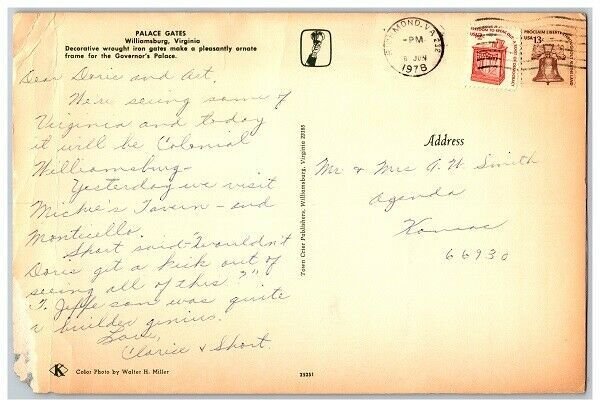 PALACE GATES
Williamsburg, Virginia
Decorative wrought iron gates make a pleasantly ornate
frame for the Governor's Palace.
Dear Doris and Art,
We're seeing some of
Virginia and today
it will be Colonial
Williamsburg -
Yesterday we visit
Michie's Tavern - and
Monticello.
Short said "Wouldn't
Doris get a kick out of
seeing all of this?"
T. Jefferson was quite
a builder genius.
Love,
Clarice & Short.
K
Color Photo by Walter H. Miller
Town Crier Publishers, Williamsburg, Virginia 23185
25251
RICHMOND, VA 232
PM
6 JUN
1978
USA 2c
PROCLAIM LIBERTY
USA 13c
Address
Mr & Mrs A. W. Smith
Agenda
Kansas
66930